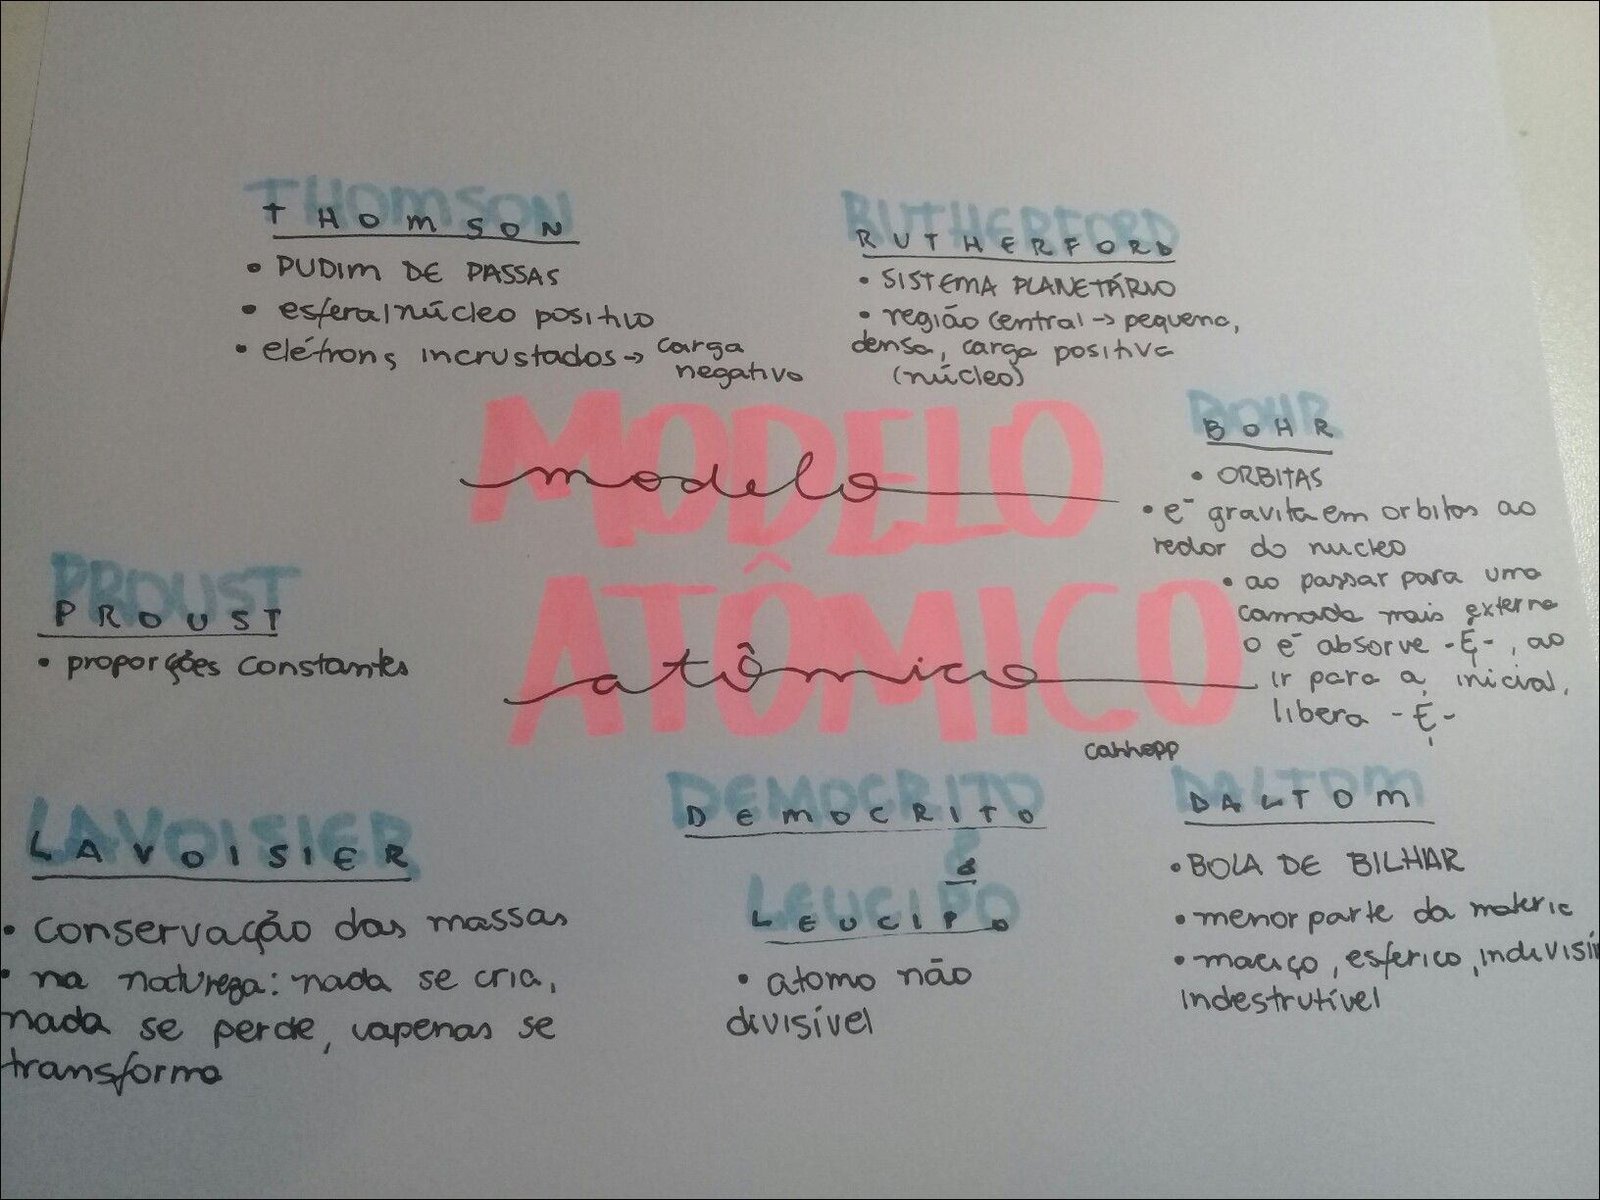 THOMSON
• PUDIM DE PASSAS
• esfera/núcleo positivo
• elétrons incrustados → carga
negativo
RUTHERFORD
• SISTEMA PLANETÁRIO
• região central → pequena,
densa, carga positiva
(núcleo)
MODELO
modelo
ATÔMICO
atômico
cahhepp
BOHR
• ORBITAS
• e⁻ gravita em orbitas ao
redor do nucleo
• ao passar para uma
camada mais externa
o e⁻ absorve -E-, ao
ir para a inicial,
libera -E-
PROUST
• proporções constantes
LAVOISIER
• conservação das massas
• na natureza: nada se cria,
nada se perde, apenas se
transforma
DEMOCRITO
&
LEUCIPO
• atomo não
divisível
DALTOM
• BOLA DE BILHAR
• menor parte da materia
• maciço, esferico, indivisí
indestrutível